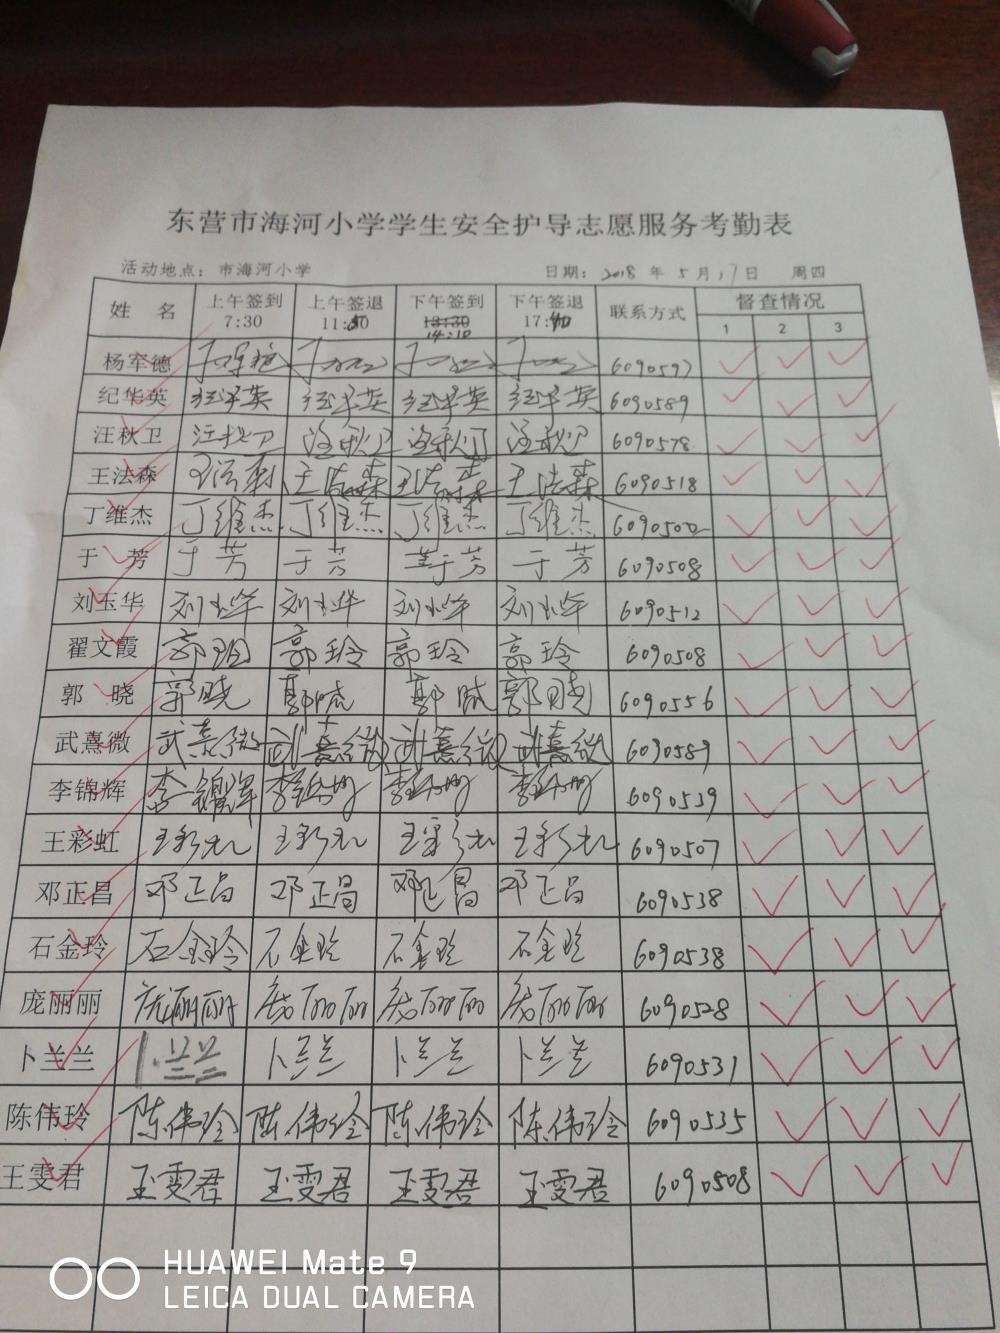 东营市海河小学学生安全护导志愿服务考勤表
活动地点：市海河小学 日期：2018 年 5 月 17 日 周四
姓 名 上午签到 上午签退 下午签到 下午签退 联系方式 督查情况
7:30 11:50 13:30 14:10 17:40 1 2 3
杨军德 6090597
纪华英 纪华英 纪华英 纪华英 纪华英 6090589
汪秋卫 汪秋卫 汪秋卫 汪秋卫 汪秋卫 6090578
王法森 王法森 王法森 王法森 王法森 6090518
丁维杰 丁维杰 丁维杰 丁维杰 丁维杰 6090502
于 芳 于芳 于芳 于芳 于芳 6090508
刘玉华 刘玉华 刘玉华 刘玉华 刘玉华 6090512
翟文霞 郭玲 郭玲 郭玲 郭玲 6090508
郭 晓 郭晓 郭晓 郭晓 郭晓 6090556
武熹微 武熹微 武熹微 武熹微 武熹微 6090589
李锦辉 李锦辉 6090539
王彩虹 王彩虹 王彩虹 王彩虹 王彩虹 6090507
邓正昌 邓正昌 邓正昌 邓正昌 邓正昌 6090538
石金玲 石金玲 石金玲 石金玲 石金玲 6090538
庞丽丽 庞丽丽 庞丽丽 庞丽丽 庞丽丽 6090528
卜兰兰 卜兰兰 卜兰兰 卜兰兰 卜兰兰 6090531
陈伟玲 陈伟玲 陈伟玲 陈伟玲 陈伟玲 6090535
王雯君 王雯君 王雯君 王雯君 王雯君 6090508
HUAWEI Mate 9
LEICA DUAL CAMERA